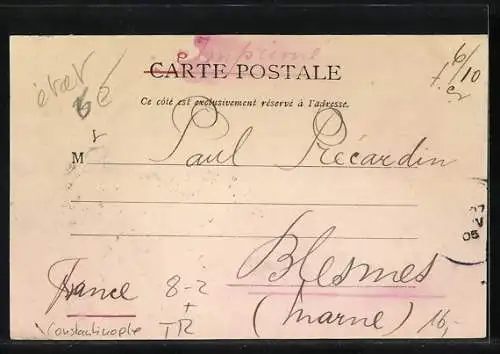 Imprimé
CARTE POSTALE
Ce côté est exclusivement réservé à l'adresse.
6/10
M r Paul Récardin
05
Blesmes
France 8-2
(Marne) 16,-
Constantinople TR